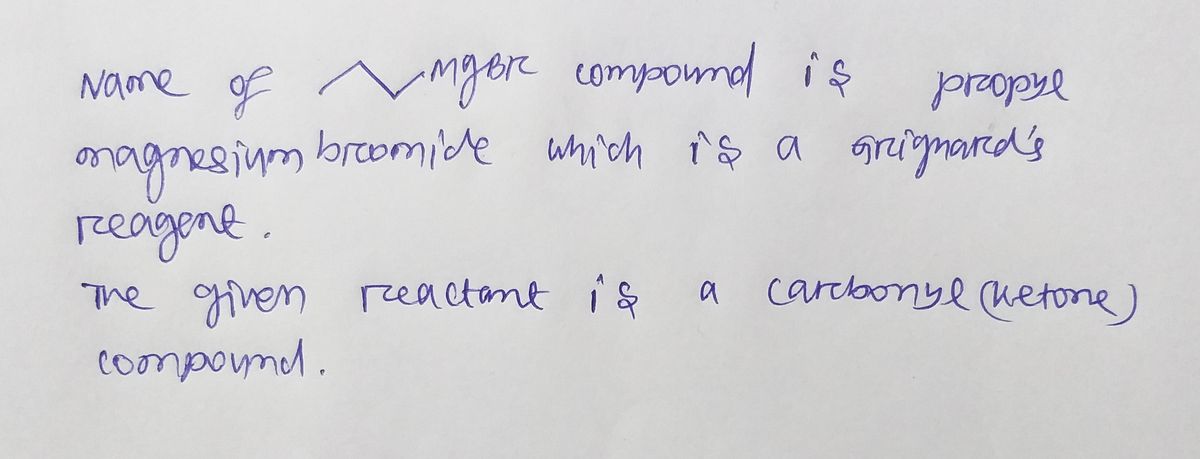 Name of MgBr compound is propyl
magnesium bromide which is a Grignard's
reagent.
The given reactant is a carbonyl (ketone)
compound.